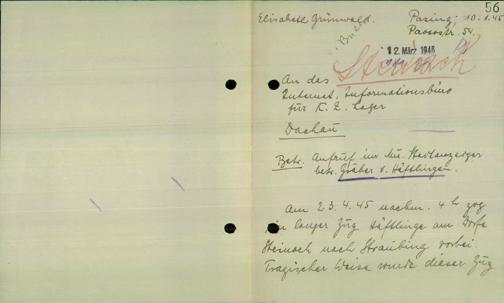 56
Elisabeth Grünwald.
Pasing, 10.1.45
Paosostr. 54.
12. März 1946
Steinach
An das
Internat. Informationsbüro
für K. Z. Lager
Dachau
Betr. Aufruf im Mü. Stadtanzeiger
betr. Gräber v. Häftlingen.
Am 23.4.45 nachm. 4 h zog
ein langer Zug Häftlinge am Dorfe
Steinach nach Straubing vorbei.
Tragischer Weise wurde dieser Zug